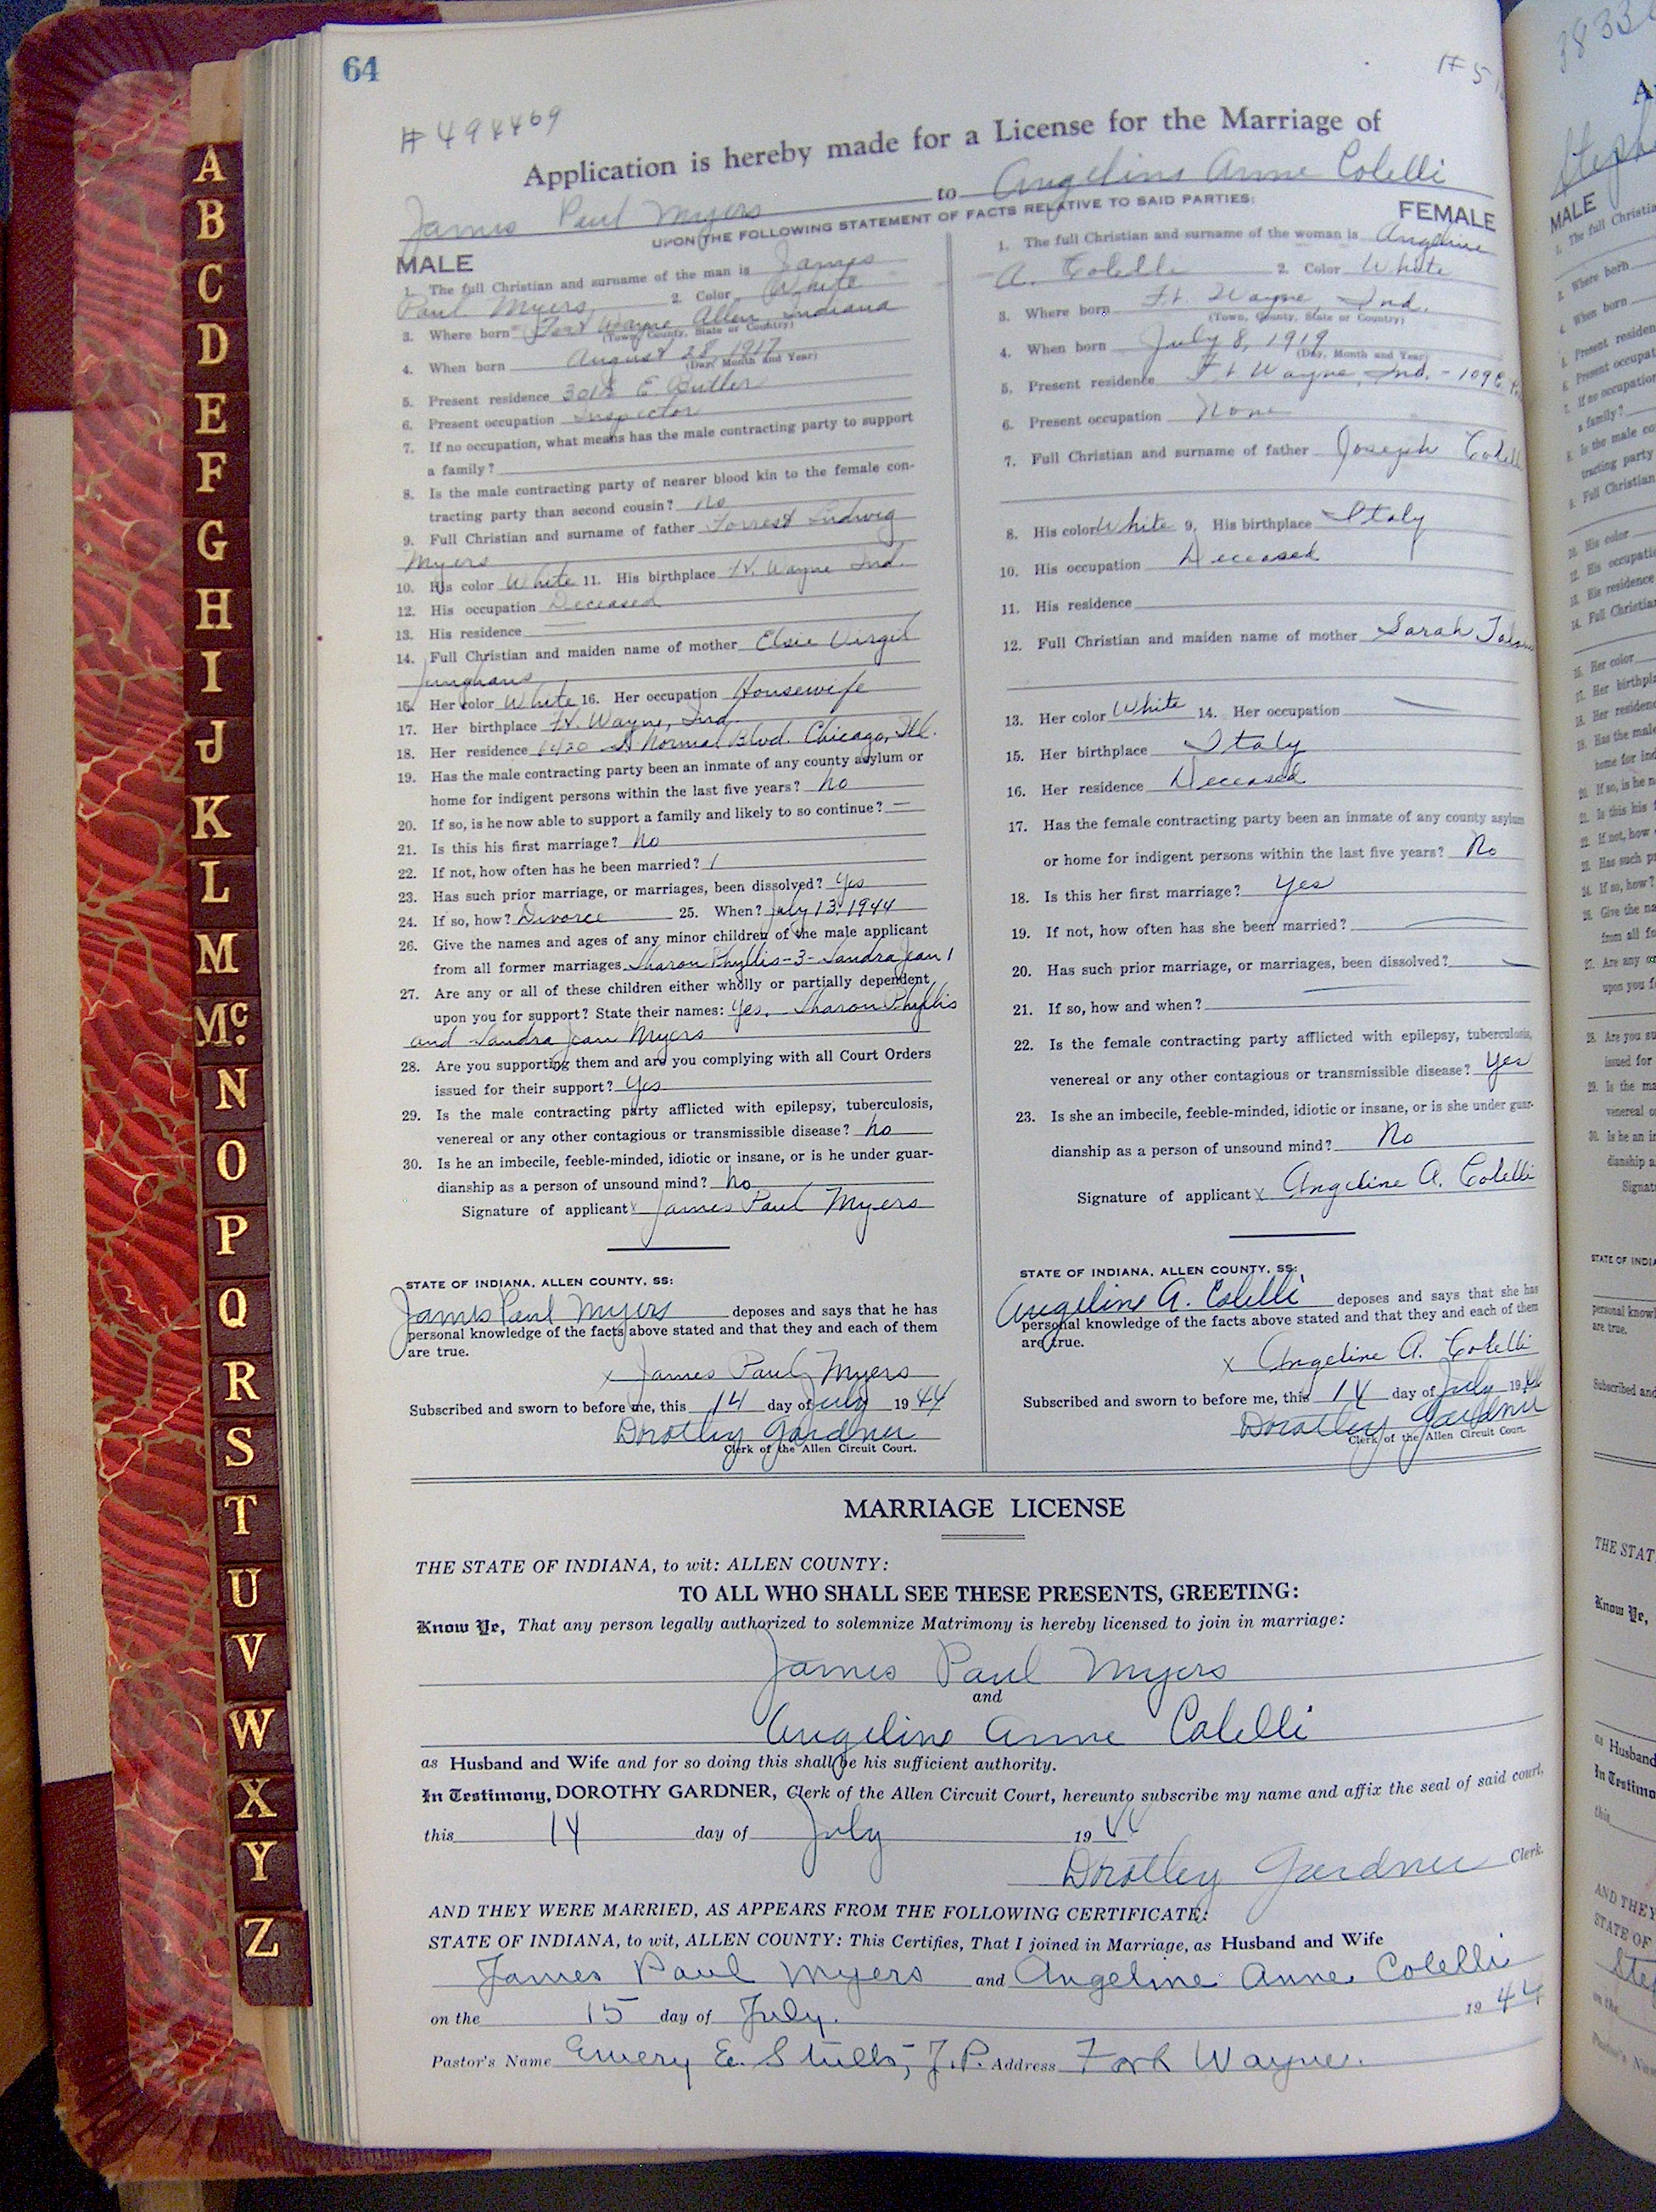 64
# 494469
# 5
3833
Application is hereby made for a License for the Marriage of
James Paul Myers to Angeline Anne Colelli
UPON THE FOLLOWING STATEMENT OF FACTS RELATIVE TO SAID PARTIES:
MALE
1. The full Christian and surname of the man is James
Paul Myers, 2. Color White
3. Where born Fort Wayne Allen Indiana
(Town, County, State or Country)
4. When born August 28 1917
(Day, Month and Year)
5. Present residence E. Butler
6. Present occupation Inspector
7. If no occupation, what means has the male contracting party to support
a family?
8. Is the male contracting party of nearer blood kin to the female con-
tracting party than second cousin? no
9. Full Christian and surname of father Forrest Ludwig
Myers
10. His color White 11. His birthplace Ft. Wayne Ind.
12. His occupation Deceased
13. His residence
14. Full Christian and maiden name of mother Elsie Virgil
Junghans
15. Her color White 16. Her occupation Housewife
17. Her birthplace Ft. Wayne, Ind.
18. Her residence Normal Blvd. Chicago, Ill.
19. Has the male contracting party been an inmate of any county asylum or
home for indigent persons within the last five years? no
20. If so, is he now able to support a family and likely to so continue? —
21. Is this his first marriage? no
22. If not, how often has he been married? 1
23. Has such prior marriage, or marriages, been dissolved? yes
24. If so, how? Divorce 25. When? July 13, 1944
26. Give the names and ages of any minor children of the male applicant
from all former marriages Sharon Phyllis-3- Sandra Jean 1
27. Are any or all of these children either wholly or partially dependent
upon you for support? State their names: yes, Sharon Phyllis
and Sandra Jean Myers
28. Are you supporting them and are you complying with all Court Orders
issued for their support? yes
29. Is the male contracting party afflicted with epilepsy, tuberculosis,
venereal or any other contagious or transmissible disease? no
30. Is he an imbecile, feeble-minded, idiotic or insane, or is he under guar-
dianship as a person of unsound mind? no
Signature of applicant x James Paul Myers
STATE OF INDIANA, ALLEN COUNTY, SS:
James Paul Myers deposes and says that he has
personal knowledge of the facts above stated and that they and each of them
are true.
x James Paul Myers
Subscribed and sworn to before me, this 14 day of July 1944
Dorothy Gardner
Clerk of the Allen Circuit Court.
FEMALE
1. The full Christian and surname of the woman is Angeline
A. Colelli 2. Color White
3. Where born Ft. Wayne, Ind.
(Town, County, State or Country)
4. When born July 8, 1919
(Day, Month and Year)
5. Present residence Ft Wayne, Ind. - 109 E.
6. Present occupation None
7. Full Christian and surname of father Joseph Colelli
8. His color White 9. His birthplace Italy
10. His occupation Deceased
11. His residence
12. Full Christian and maiden name of mother Sarah
13. Her color White 14. Her occupation —
15. Her birthplace Italy
16. Her residence Deceased
17. Has the female contracting party been an inmate of any county asylum
or home for indigent persons within the last five years? No
18. Is this her first marriage? Yes
19. If not, how often has she been married? —
20. Has such prior marriage, or marriages, been dissolved? —
21. If so, how and when? —
22. Is the female contracting party afflicted with epilepsy, tuberculosis,
venereal or any other contagious or transmissible disease? Yes
23. Is she an imbecile, feeble-minded, idiotic or insane, or is she under guar-
dianship as a person of unsound mind? No
Signature of applicant x Angeline A. Colelli
STATE OF INDIANA, ALLEN COUNTY, SS:
Angeline A. Colelli deposes and says that she has
personal knowledge of the facts above stated and that they and each of them
are true.
x Angeline A. Colelli
Subscribed and sworn to before me, this 14 day of July 1944
Dorothy Gardner
Clerk of the Allen Circuit Court.
MARRIAGE LICENSE
THE STATE OF INDIANA, to wit: ALLEN COUNTY:
TO ALL WHO SHALL SEE THESE PRESENTS, GREETING:
Know Ye, That any person legally authorized to solemnize Matrimony is hereby licensed to join in marriage:
James Paul Myers
and
Angeline Anne Colelli
as Husband and Wife and for so doing this shall be his sufficient authority.
In Testimony, DOROTHY GARDNER, Clerk of the Allen Circuit Court, hereunto subscribe my name and affix the seal of said court,
this 14 day of July 1944
Dorothy Gardner Clerk.
AND THEY WERE MARRIED, AS APPEARS FROM THE FOLLOWING CERTIFICATE:
STATE OF INDIANA, to wit, ALLEN COUNTY: This Certifies, That I joined in Marriage, as Husband and Wife
James Paul Myers and Angeline Anne Colelli
on the 15 day of July. 1944
Pastor's Name Emery E. Stults, J.P. Address Fort Wayne.
A
B
C
D
E
F
G
H
I
J
K
L
M
Mc.
N
O
P
Q
R
S
T
U
V
W
X
Y
Z